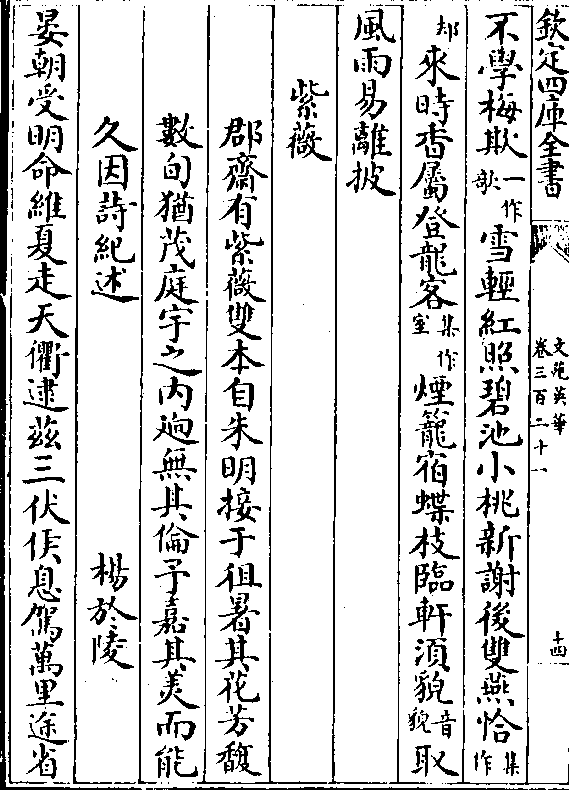 欽定四庫全書
文苑英華
卷三百二十一
十四
不學梅欺一作歌雪輕紅照碧池小桃新謝後雙燕恰集作
却來時香屬登龍客集作室煙籠宿蝶枝臨軒須貌音貌取
風雨易離披
紫薇
郡齋有紫薇雙本自朱明接于徂暑其花芳馥
數旬猶茂庭宇之内逈無其倫予嘉其美而能
久因詩紀述
楊於陵
晏朝受明命維夏走天衢逮兹三伏候息駕萬里途省